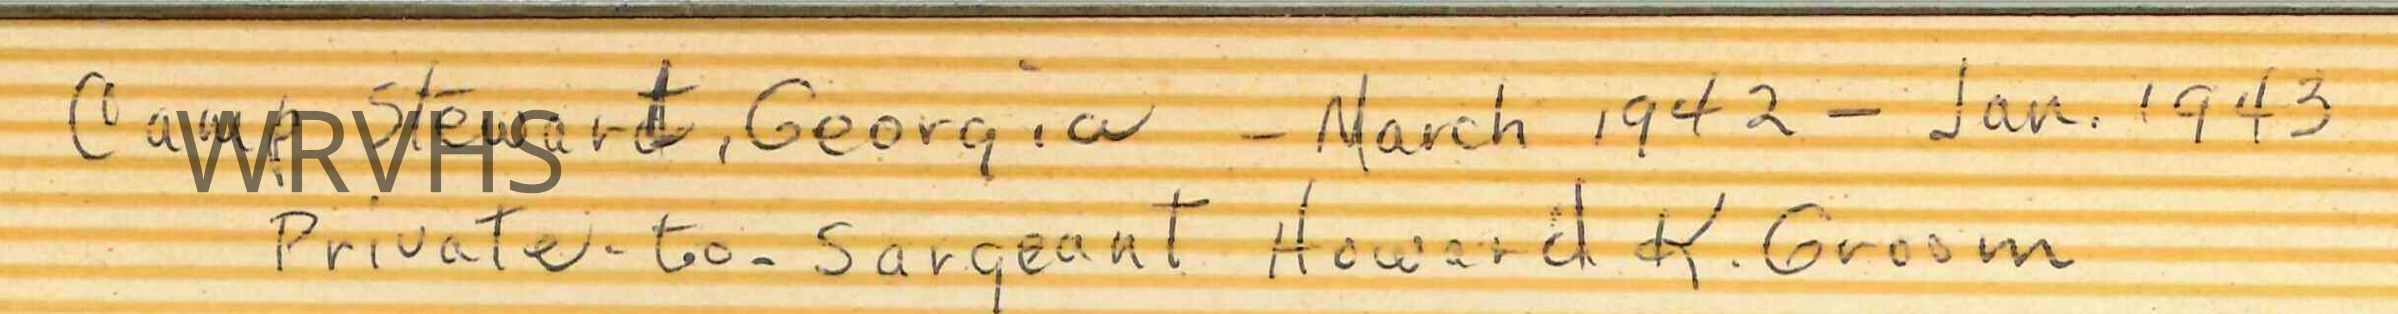 Camp Stewart, Georgia - March 1942 - Jan. 1943
WRVHS
Private-to-Sargeant Howard K. Groom